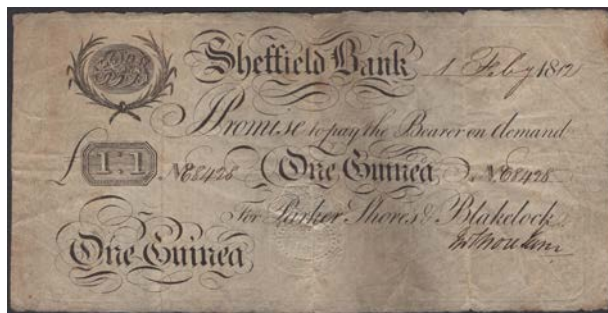 Sheffield Bank 1 Feby 1812
I Promise to pay the Bearer on demand
£ 1:1 No 8428 One Guinea No 8428
For Parker Shores & Blakelock
One Guinea